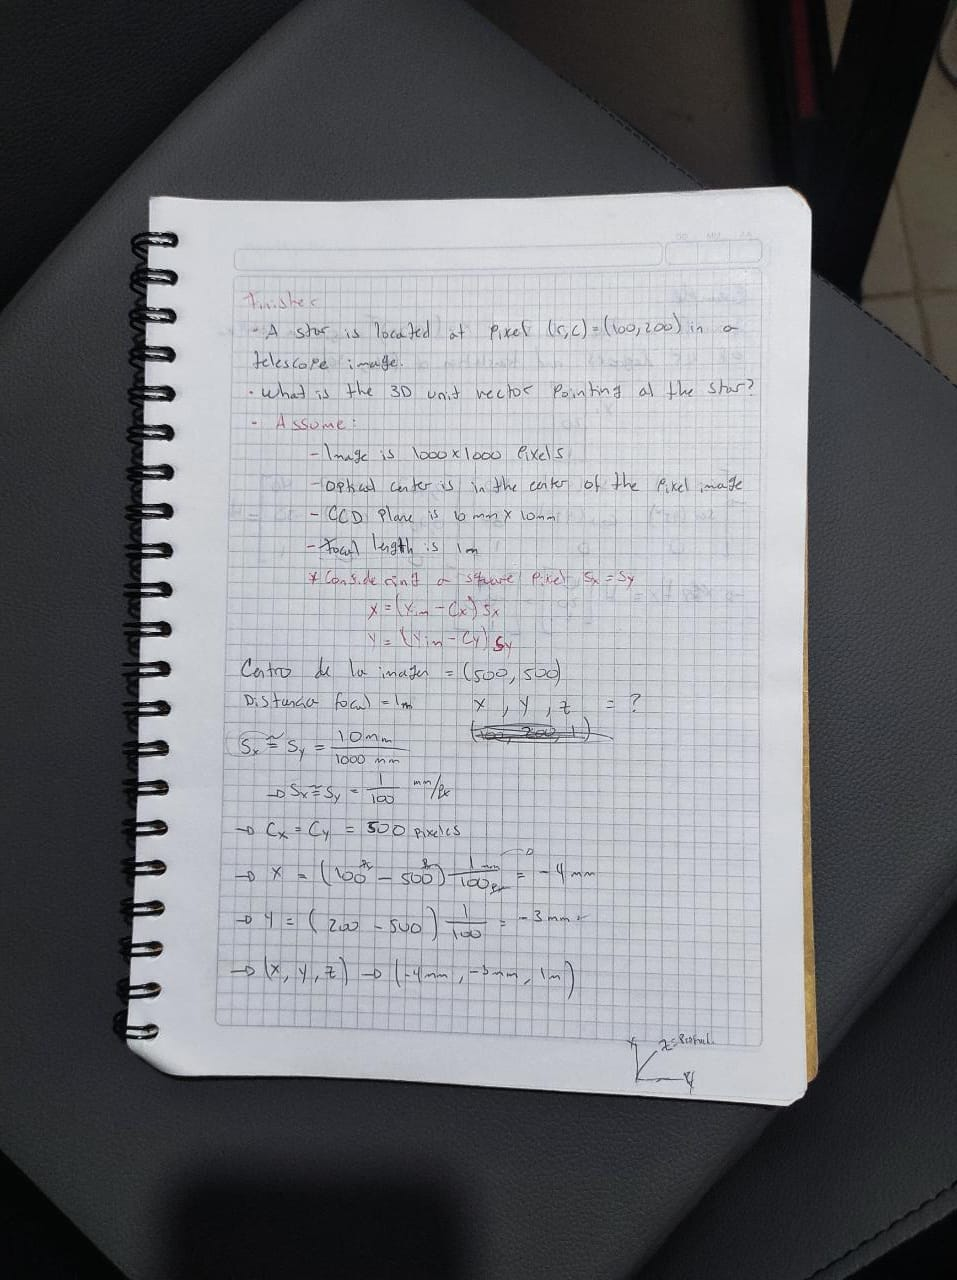 - A star is located at Pixel (r,c)=(100,200) in a
telescope image.
. What is the 3D unit vector Pointing at the star?
- Assume:
- Image is 1000 x 1000 Pixels
- Optical center is in the center of the Pixel image
- CCD Plane is 10 mm x 10mm
- Focal length is 1m
* Considering a square Pixel Sx = Sy
X = (Xim - Cx) Sx
Y = (Yim - Cy) Sy
Centro de la imagen = (500, 500)
Distancia focal = 1m X , Y , Z = ?
Sx ≅ Sy = 10mm / 1000 mm
→ Sx ≅ Sy = 1/100 mm/Px
→ Cx = Cy = 500 pixeles
→ X = (100 - 500) 1mm/100px = -4mm
→ Y = (200 - 500) 1/100 = -3mm
→ (X, Y, Z) → (-4mm, -3mm, 1m)
X Z=
Y